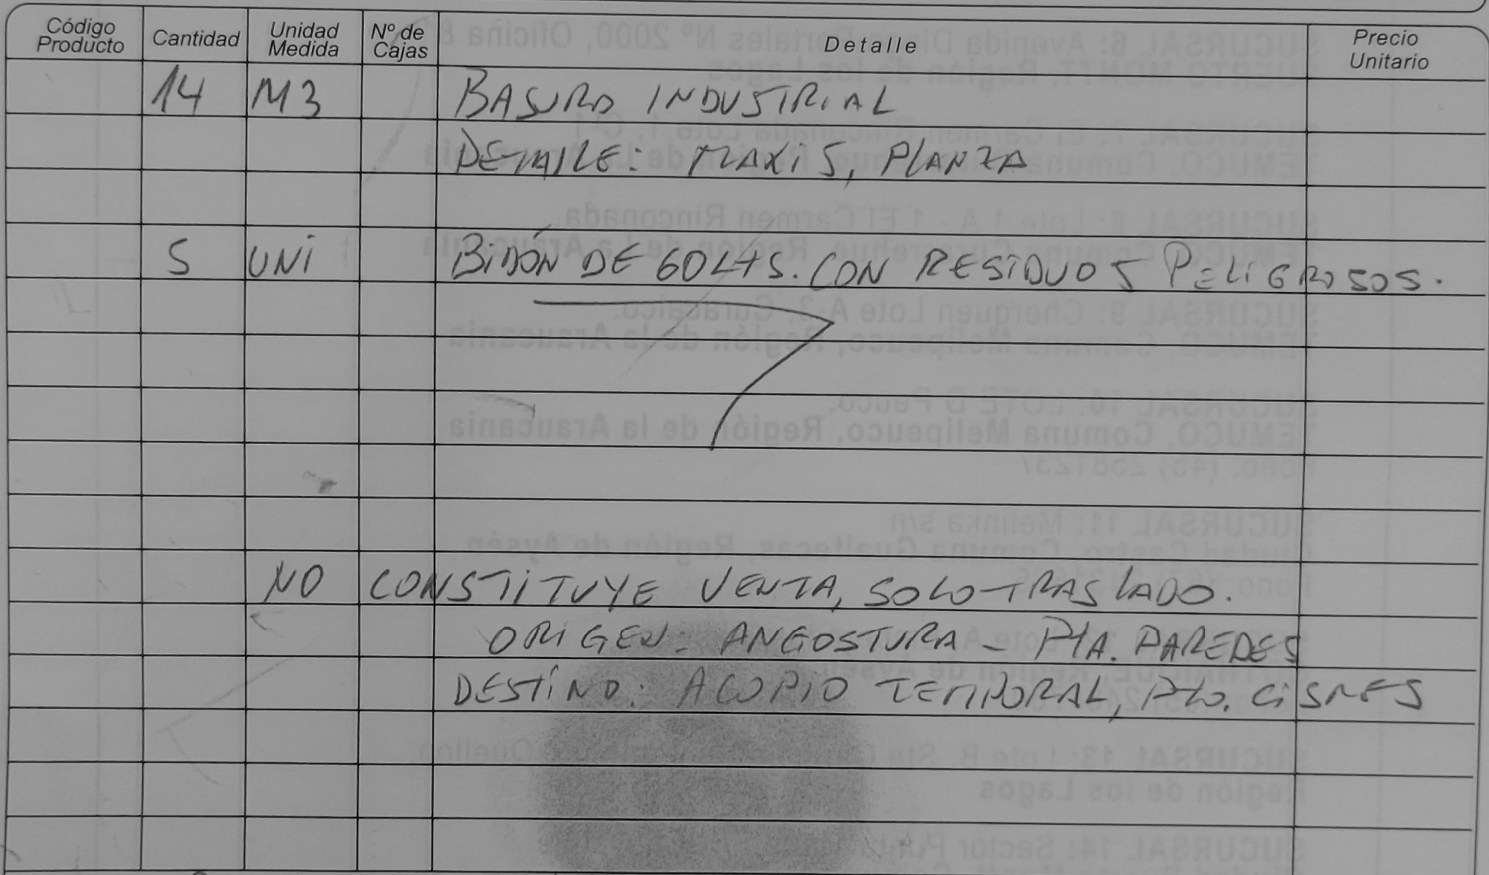 Código Producto Cantidad Unidad Medida Nº de Cajas Detalle Precio Unitario
14 M3 BASURA INDUSTRIAL
DETALLE: MAXIS, PLANZA
5 UNI BIDÓN DE 60 LTS. CON RESIDUOS PELIGROSOS.
NO CONSTITUYE VENTA, SOLO TRASLADO.
ORIGEN: ANGOSTURA - PTA. PAREDES
DESTINO: ACOPIO TEMPORAL, PTO. CISNES